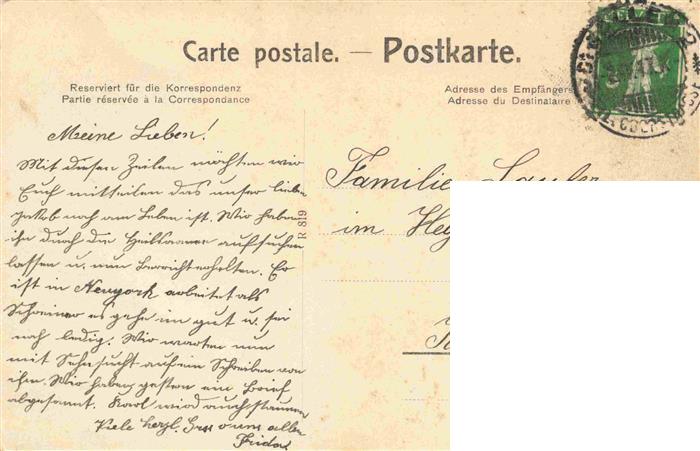 Carte postale. — Postkarte.
Reserviert für die Korrespondenz
Partie réservée à la Correspondance
Adresse des Empfängers
Adresse du Destinataire
Meine Lieben!
Mit diesen Zeilen möchten wir
Euch mitteilen das unser lieber
Jakob noch am Leben ist. Wir haben
ihn durch die Heilsarmee aufsuchen
lassen u. nun Berricht erhalten. Er
ist in Neuyork arbeitet als
Schreiner es gehe im gut u. sei
noch ledig. Wir warten nun
mit Sehnsucht auf ein Schreiben von
ihm. Wir haben gestern ein Brief
abgesannt. Karl wird auch staunen
Viele herzl. Grus v uns allen
Frida
R 819
Familie
im